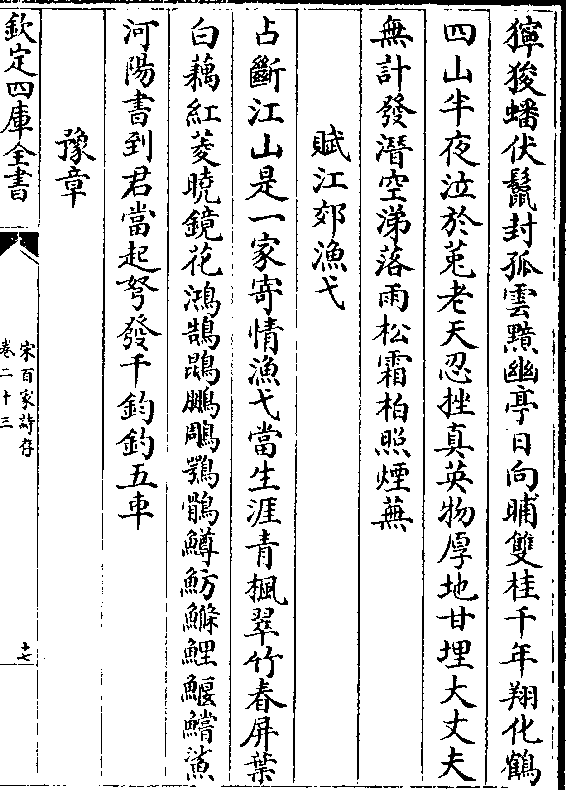 獰狻蟠伏鬛封孤雲黯幽亭日向晡雙桂千年翔化鶴
四山半夜泣於菟老天忍挫真英物厚地甘埋大丈夫
無計發潛空涕落雨松霜柏照煙蕪
賦江郊漁弋
占斷江山是一家寄情漁弋當生涯青楓翠竹春屏葉
白藕紅菱曉鏡花鴻鵠鵾鵬鵰鶚鶻鱒魴鰷鯉鰋鱨鯊
河陽書到君當起弩發千鈞鈞五車
豫章
欽定四庫全書
宋百家詩存
卷二十三
十七